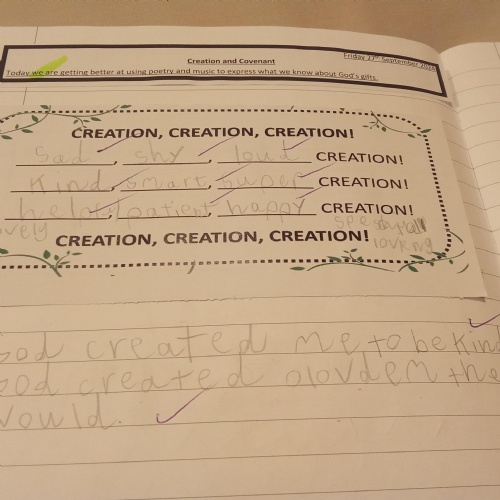 Creation and Covenant
Friday 27th September 2024
Today we are getting better at using poetry and music to express what we know about God's gifts.
CREATION, CREATION, CREATION!
Sad, shy, loud CREATION!
Kind, smart, super CREATION!
helpful, patient, happy CREATION!
CREATION, CREATION, CREATION!
loveing
God created me to be Kind
God created olovdem the
Would.